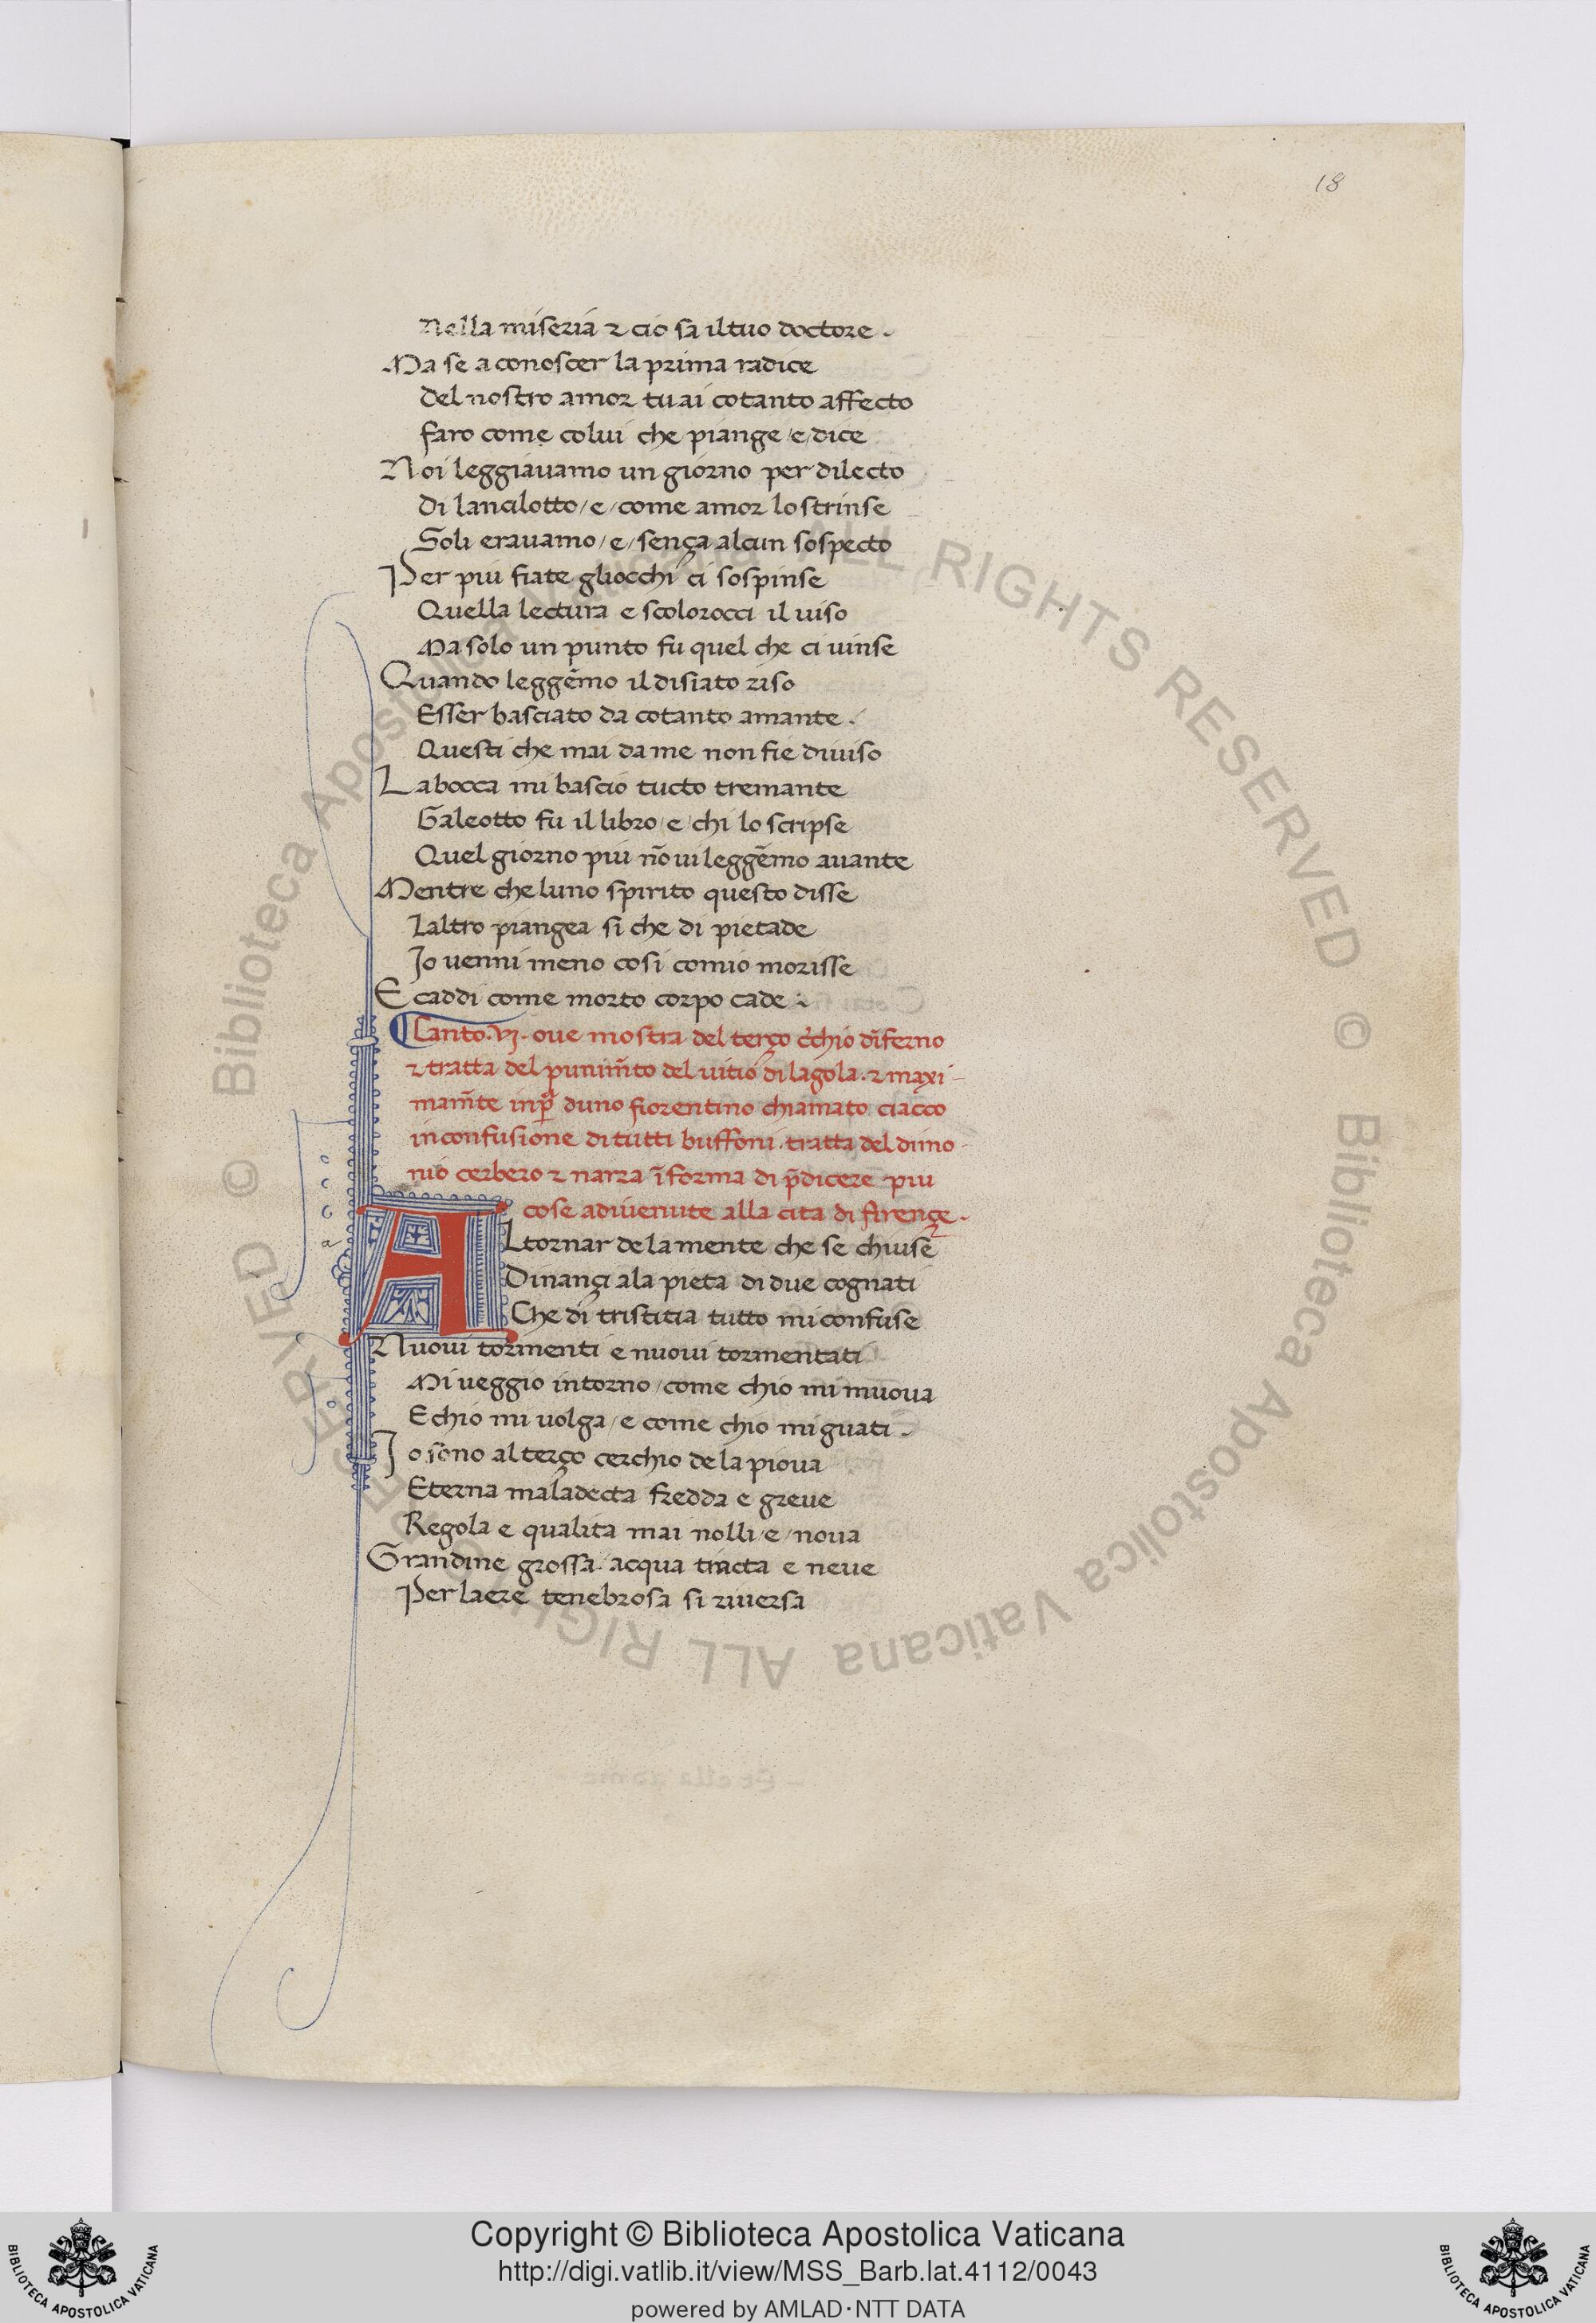 18
Nella miseria ⁊ cio sa il tuo doctore.
Ma se a conoscer la prima radice
del nostro amor tu ai cotanto affecto
faro come colui che piange / e / dice
Noi leggiavamo un giorno per dilecto
di lancilotto / e / come amor lo strinse
Soli eravamo / e / sença alcun sospecto
Per piu fiate gliocchi ci sospinse
Quella lectura e scolorocci il uiso
Ma solo un punto fu quel che ci uinse
Quando leggēmo il disiato riso
Esser basciato da cotanto amante.
Questi che mai da me non fie diuiso
La bocca mi bascio tucto tremante
Galeotto fu il libro / e / chi lo scripse
Quel giorno piu nō ui leggēmo auante
Mentre che luno spirito questo disse
Laltro piangea si che di pietade
Io uenni meno cosi comio morisse
E caddi come morto corpo cade
Canto. VI. oue mostra del terço c̄chio dīferno
⁊ tratta del punim̄to del uitio di la gola. ⁊ maxi-
mam̄te in p̄ duno fiorentino chiamato ciacco
in confusione di tutti buffoni. tratta del dimo-
nio cerbero ⁊ narra ī forma di p̄dicere piu
cose adiuenute alla cita di firençe.
ALtornar de la mente che se chiuse
Dinançi ala pieta di due cognati
Che di tristitia tutto mi confuse
Nuoui tormenti e nuoui tormentati
Mi veggio intorno / come chio mi muova
E chio mi uolga / e come chio mi guati.
Io sono al terço cerchio de la piova
Eterna maladecta fredda e greue
Regola e qualita mai nolli / e / nova
Grandine grossa / acqua tincta e neue
Per laere tenebrosa si riversa
© Biblioteca Apostolica Vaticana ALL RIGHTS RESERVED © Biblioteca Apostolica Vaticana ALL RIGHTS RESERVED
Copyright © Biblioteca Apostolica Vaticana
http://digi.vatlib.it/view/MSS_Barb.lat.4112/0043
powered by AMLAD·NTT DATA
BIBLIOTECA APOSTOLICA VATICANA
BIBLIOTECA APOSTOLICA VATICANA